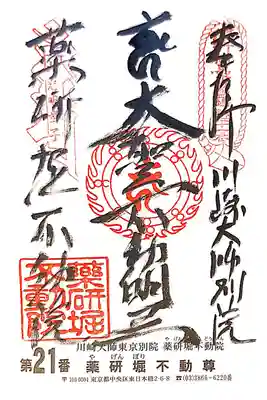 川崎大師別院
大聖不動明王
薬研堀不動院
薬研堀
不動院
川崎大師東京別院 薬研堀不動院
やげんぼり
第21番 薬研堀不動尊
〒103-0004 東京都中央区東日本橋2-6-8 ☎(03)3866-6220番